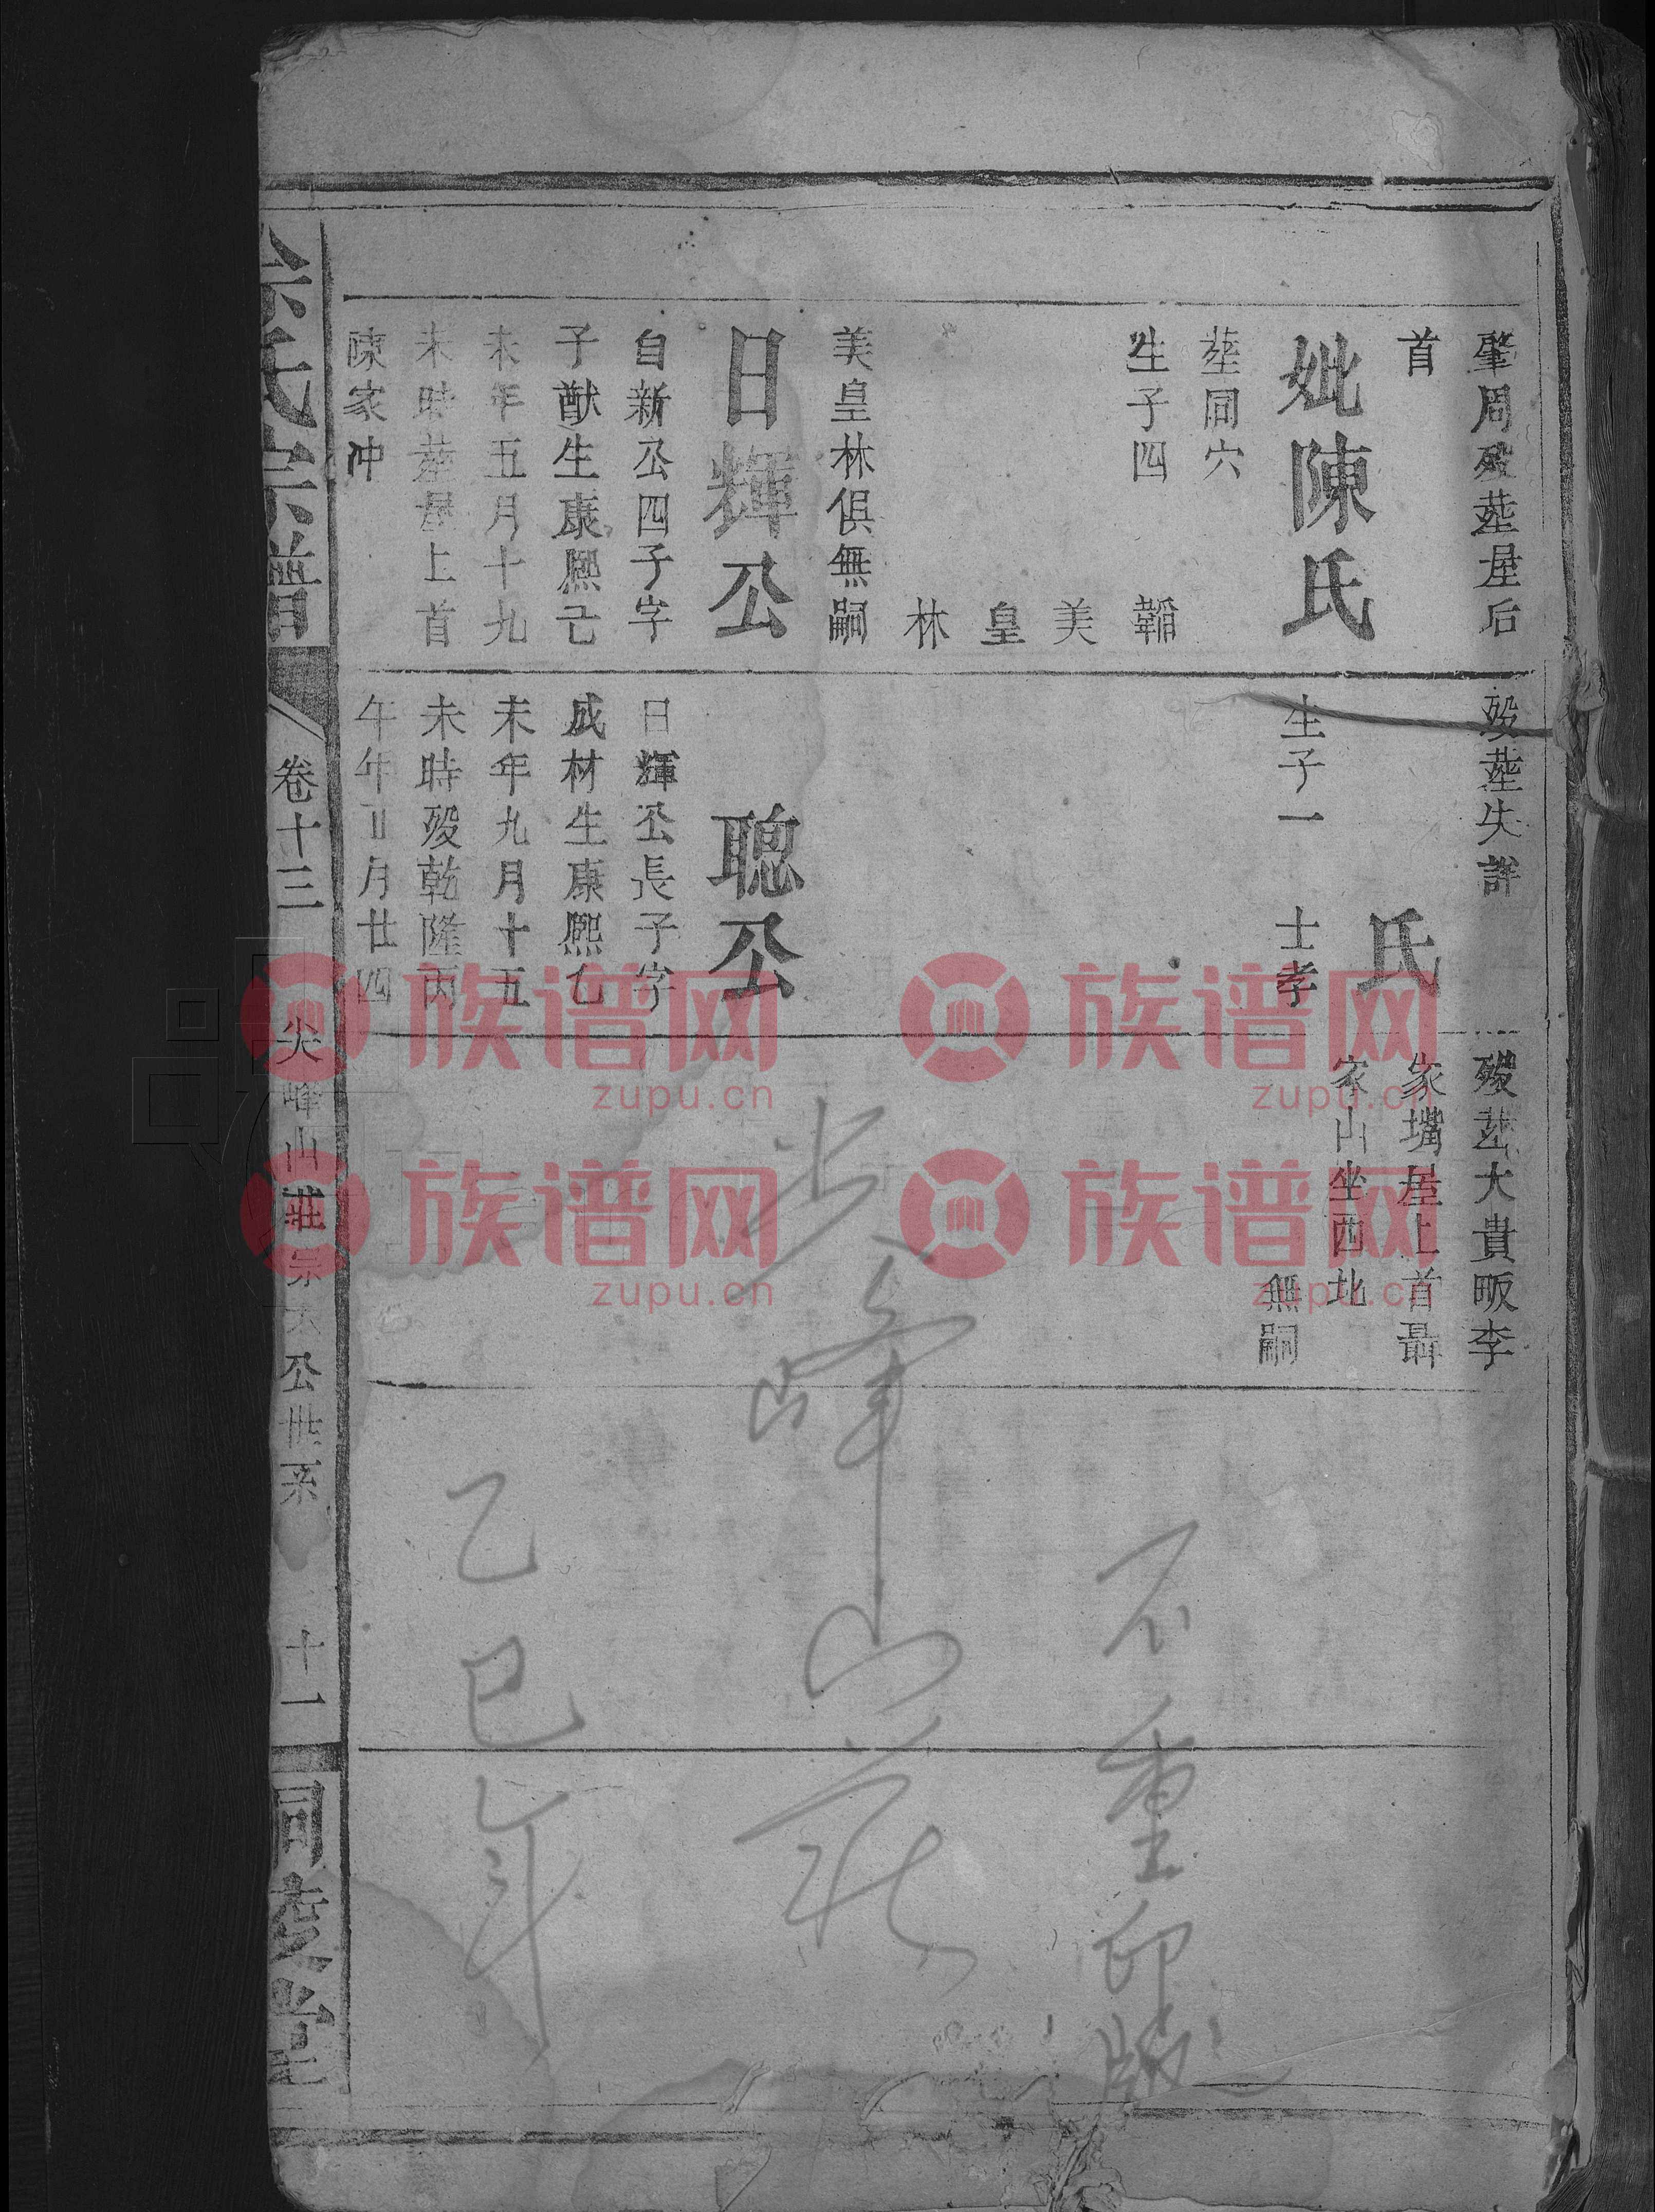 肇周殁塟屋后
首
妣陳氏
塟同穴
生子四
韜
美
皇
林
美皇林俱無嗣
日輝公
自新公四子字
子猷生康熙己
未年五月十九
未時塟屋上首
陳家冲
殁塟失詳
氏
生子一 士孝
聰公
日輝公長子字
成材生康熙乙
未年九月十五
未時殁乾隆丙
午年 月廿四
殁塟大貴畈李
家嘴屋上首聶
家山坐西北
無嗣
氏宗譜
卷十三
尖峰山莊 公世系
十一
同 堂
不重印
尖峰山莊
乙巳年
族谱网
zupu.cn
族谱网
zupu.cn
族谱网
zupu.cn
族谱网
zupu.cn